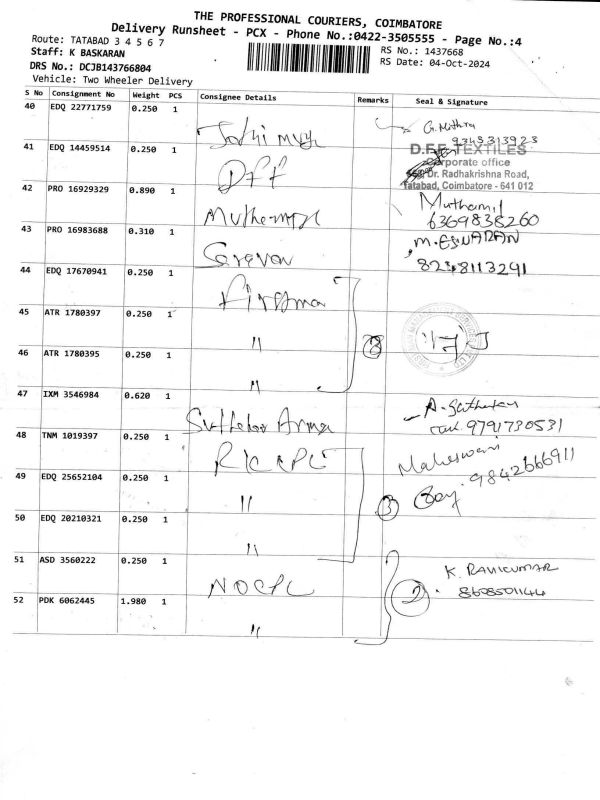 THE PROFESSIONAL COURIERS, COIMBATORE
Delivery Runsheet - PCX - Phone No.:0422-3505555 - Page No.:4
Route: TATABAD 3 4 5 6 7
Staff: K BASKARAN
DRS No.: DCJB143766804
Vehicle: Two Wheeler Delivery
RS No.: 1437668
RS Date: 04-Oct-2024
S No Consignment No Weight PCS Consignee Details Remarks Seal & Signature
40 EDQ 22771759 0.250 1 G. Mithra
9345313923
41 EDQ 14459514 0.250 1 Dff
D.F.F TEXTILES
Corporate office
Dr. Radhakrishna Road,
Tatabad, Coimbatore - 641 012
42 PRO 16929329 0.890 1 Muthamil
6369838260
43 PRO 16983688 0.310 1 Saravan
M. ESWARAN
8248113291
44 EDQ 17670941 0.250 1
45 ATR 1780397 0.250 1 "
46 ATR 1780395 0.250 1 "
3
47 IXM 3546984 0.620 1
9791730531
48 TNM 1019397 0.250 1
Maheswari
9842666911
49 EDQ 25652104 0.250 1 "
3
50 EDQ 20210321 0.250 1 "
51 ASD 3560222 0.250 1 NOCPL
K. RAVIKUMAR
8608501144
2
52 PDK 6062445 1.980 1 "